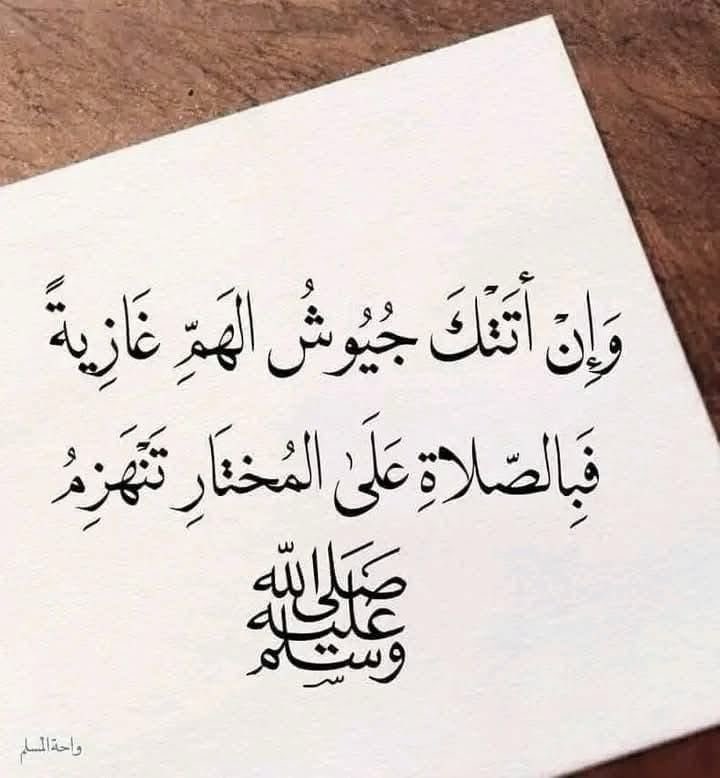 وَإِنْ أَتَتْكَ جُيُوشُ الهَمِّ غَازِيةً
فَبِالصّلاةِ عَلَىٰ المُختَارِ تَنْهَزِمُ
صَلَى اللّه
عليه
وسلم
واحة المسلم